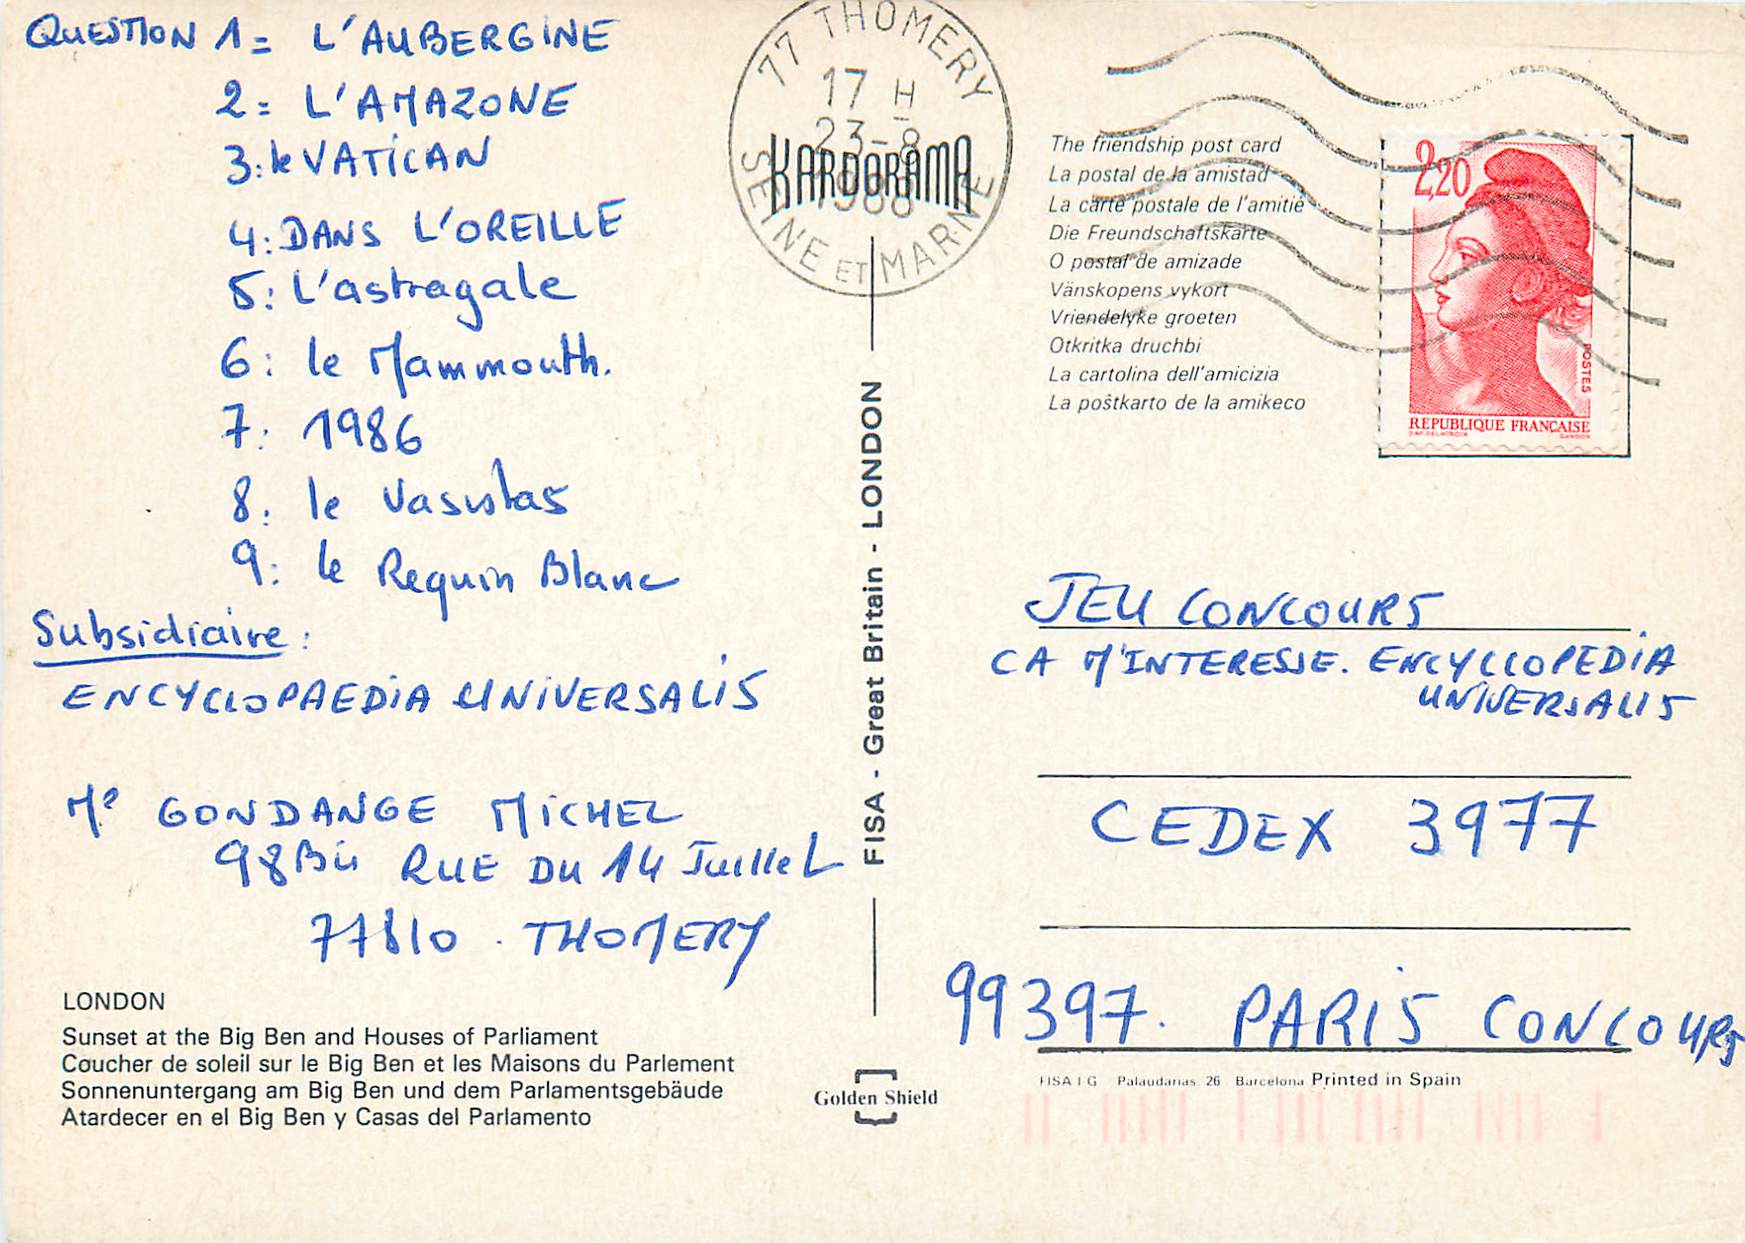 QUESTION 1 = L'AUBERGINE
2 = L'AMAZONE
3 : le VATICAN
4 : DANS L'OREILLE
5 : L'astragale
6 : le Mammouth.
7 : 1986
8 : le Vasistas
9 : le Requin Blanc
Subsidiaire :
ENCYCLOPAEDIA UNIVERSALIS
Mr GONDANGE MICHEL
98 Bis RUE DU 14 Juillet
77810 . THOMERY
LONDON
Sunset at the Big Ben and Houses of Parliament
Coucher de soleil sur le Big Ben et les Maisons du Parlement
Sonnenuntergang am Big Ben und dem Parlamentsgebäude
Atardecer en el Big Ben y Casas del Parlamento
77 THOMERY
17 H
23-8
1988
SEINE ET MARNE
KARDORAMA
FISA - Great Britain - LONDON
Golden Shield
The friendship post card
La postal de la amistad
La carte postale de l'amitié
Die Freundschaftskarte
O postal de amizade
Vänskopens vykort
Vriendelyke groeten
Otkritka druchbi
La cartolina dell'amicizia
La poŝtkarto de la amikeco
2,20
POSTES
REPUBLIQUE FRANÇAISE
JEU CONCOURS
CA M'INTERESSE. ENCYCLOPEDIA
UNIVERSALIS
CEDEX 3977
99397. PARIS CONCOURS
FISA I G Palaudarias, 26 Barcelona Printed in Spain